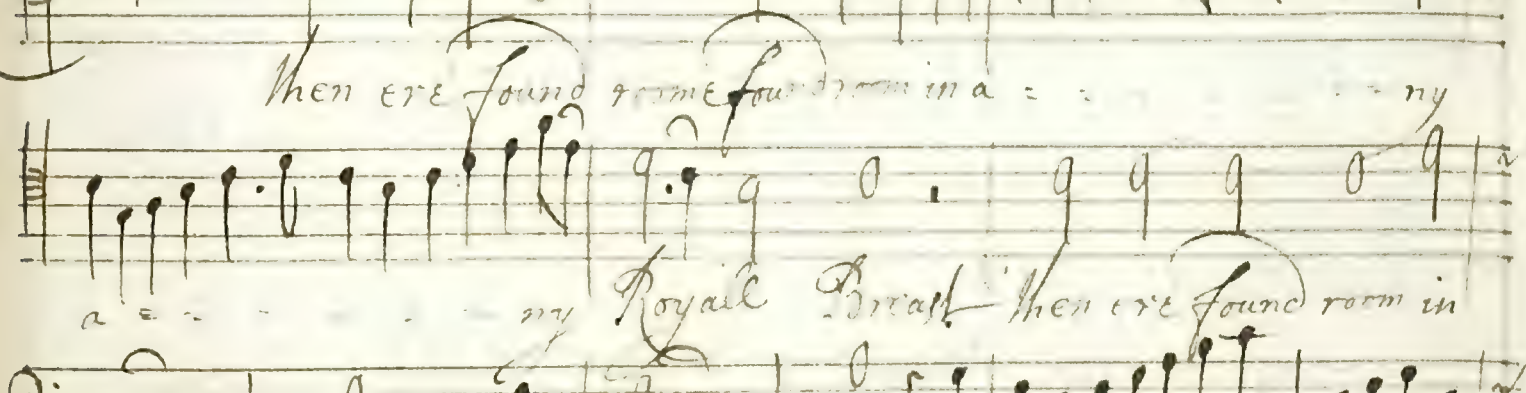 then ere found roome found room in a - - - - - ny
a - - - - - - ny Royall Breast then ere found room in